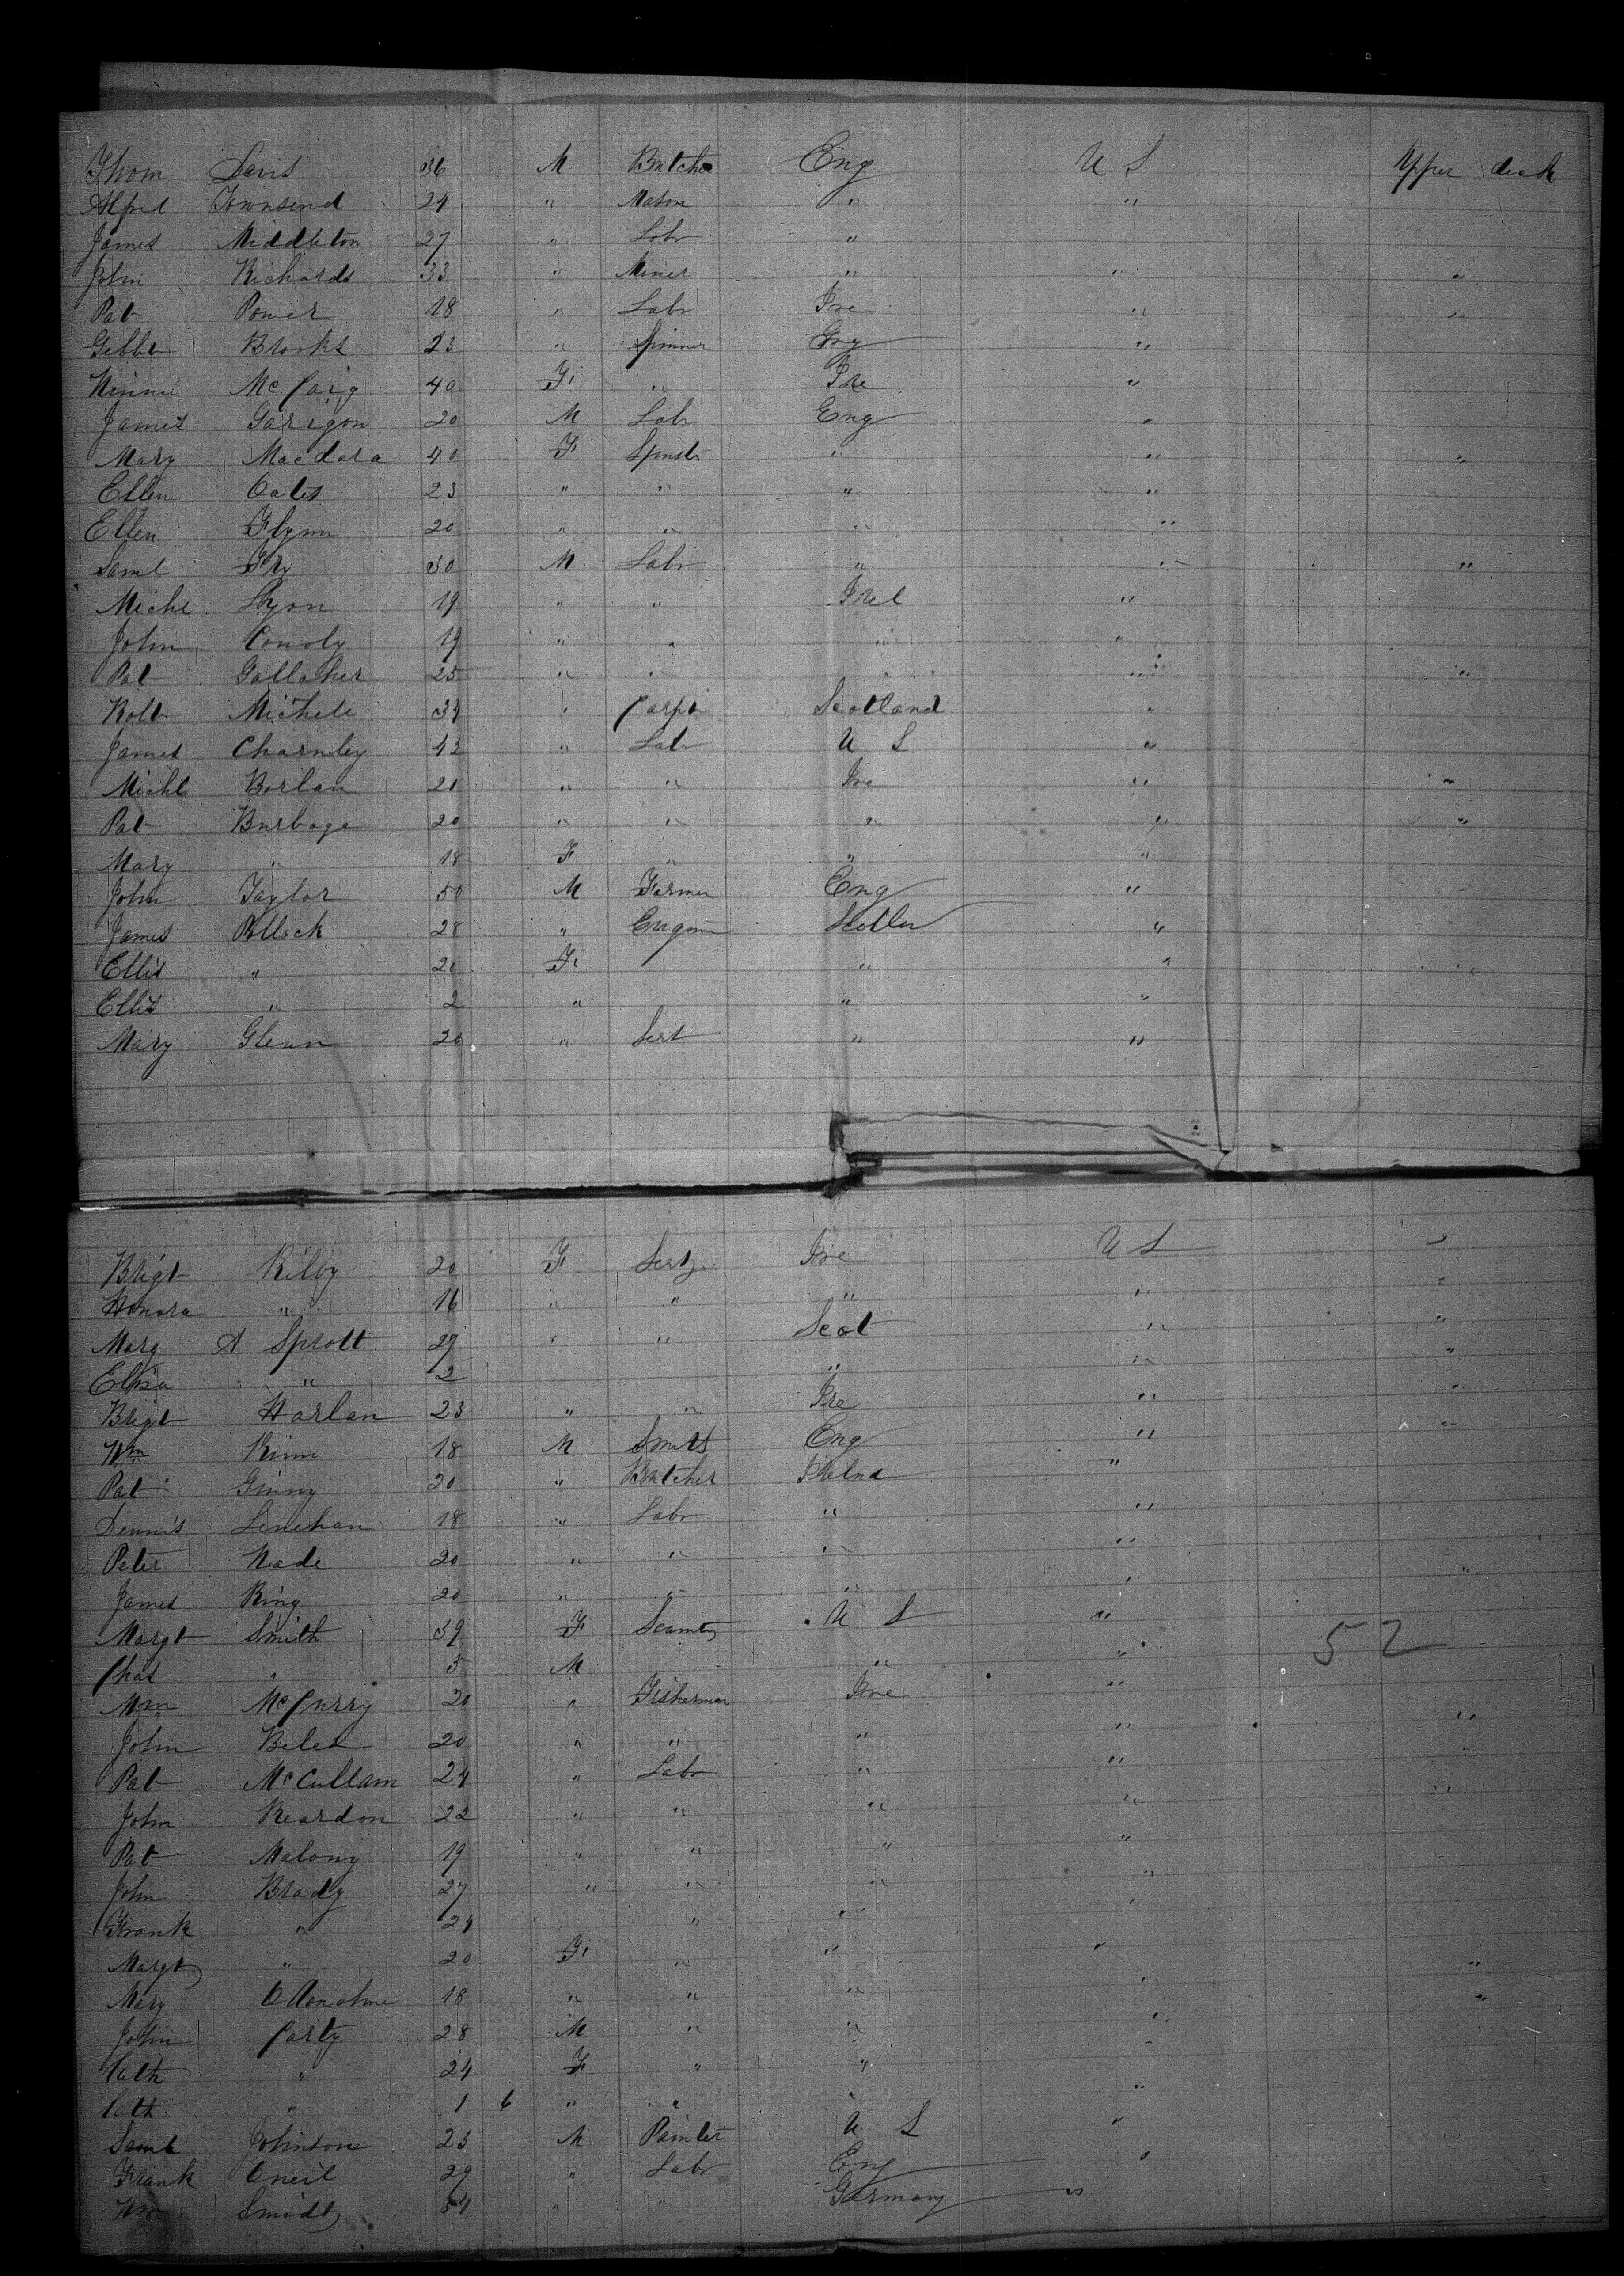 Thom Davis 36 M Butcher Eng U S Upper deck
Alfred Townsend 24 " Mason " "
James Middleton 27 " Labr "
John Richards 33 " Miner " " "
Pat Power 18 " Labr Ire " "
Brooks 23 " Spinner Eng "
Minnie McCaig 40 F " Ire "
James Garigon 20 M Labr Eng "
Mary Macdara 40 F Spinstr " " "
Ellen Oates 23 " " " "
Ellen Flynn 20 " " " "
Saml Fry 30 M Labr " " "
Michl Lyon 19 " " Irel "
John Conoly 19 " " " "
Pat Gallaher 25 " " " " "
Robt Michele 34 " Carpt Scotland "
James Charnley 42 " Labr U S "
Michl Borlan 21 " " Ire " "
Pat Burbage 20 " " " " "
Mary " 18 F " " "
John Taylor 50 M Farmer Eng "
James Pollock 28 " "
" 20 F " " "
" 2 " " "
Mary Glenn 20 " Sert " "
Brigt Kilby 20 F Sert Ire U S "
Honara " 16 " " " " "
Mary A Sprott 27 " " Scot " "
Eliza " 2 " " "
Brigt Harlan 23 " " Ire " "
Wm 18 M Smith Eng " "
Pat Ginny 20 " Butcher "
Dennis Linehan 18 " Labr " "
Peter Wade 20 " " " "
James King 20 " " " " "
Margt Smith 39 F U S " 52
Chas " 5 M " "
Wm McCurry 20 " Fisherman Ire "
John 20 " " " " "
Pat McCullam 24 " Labr " "
John Reardon 22 " " " " "
Pat Malony 19 " " " "
John Brady 27 " " " "
Frank " 24 " " "
Margt " 20 F " " "
Mary O Donohue 18 " " " " "
John Carty 28 M " " "
Cath " 24 F " " "
Cath " 1 6 " " " "
Saml Johnson 23 M Painter U S "
Frank Oneil 29 " Labr Eng "
Wm Smidt 54 " " Germany "